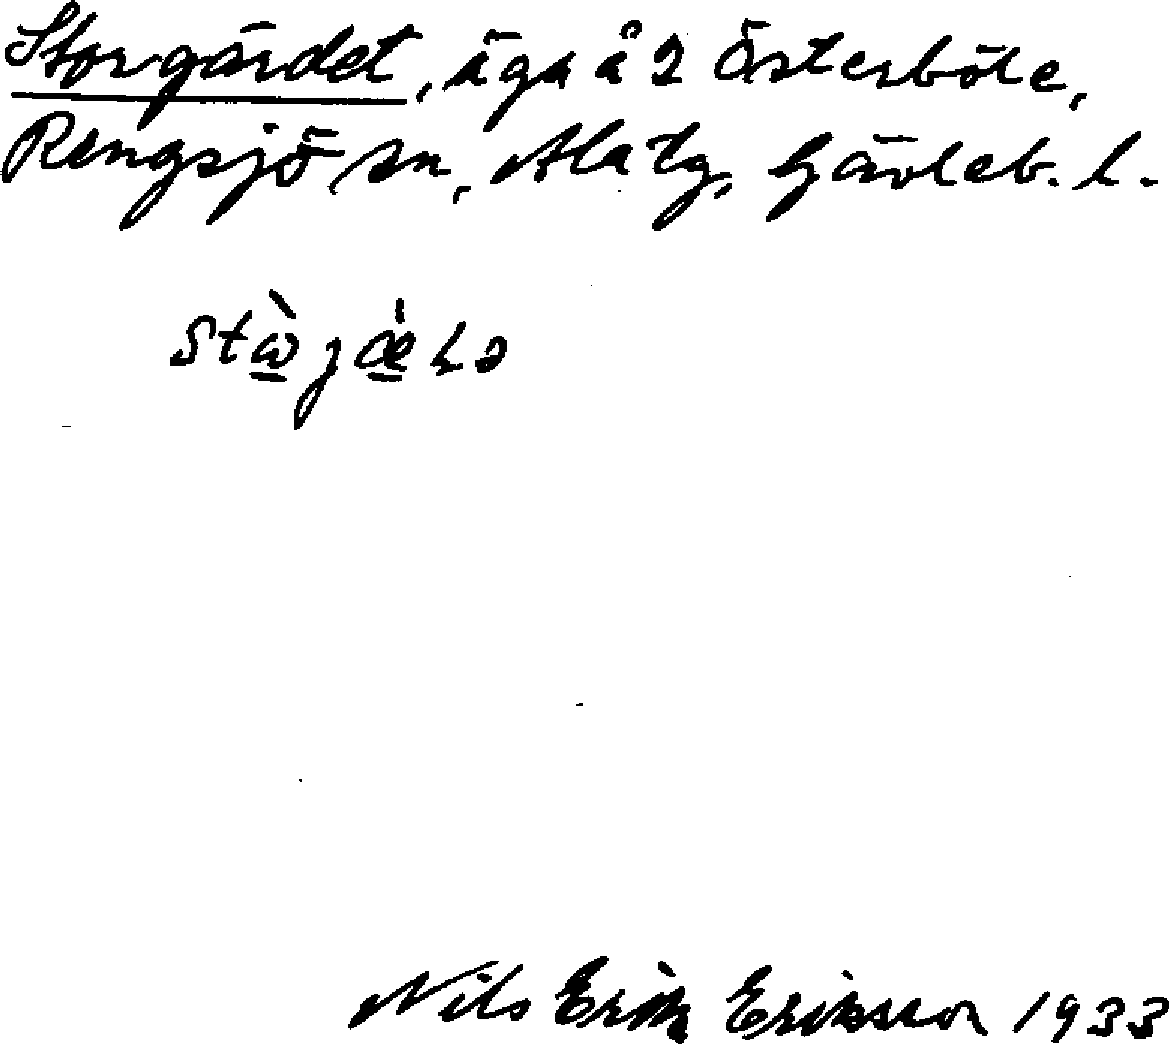 Storgärdet, äga å 2 Österböle,
Rengsjö sn, Ala tg, Gävleb. l.
Nils Erik Eriksson 1933